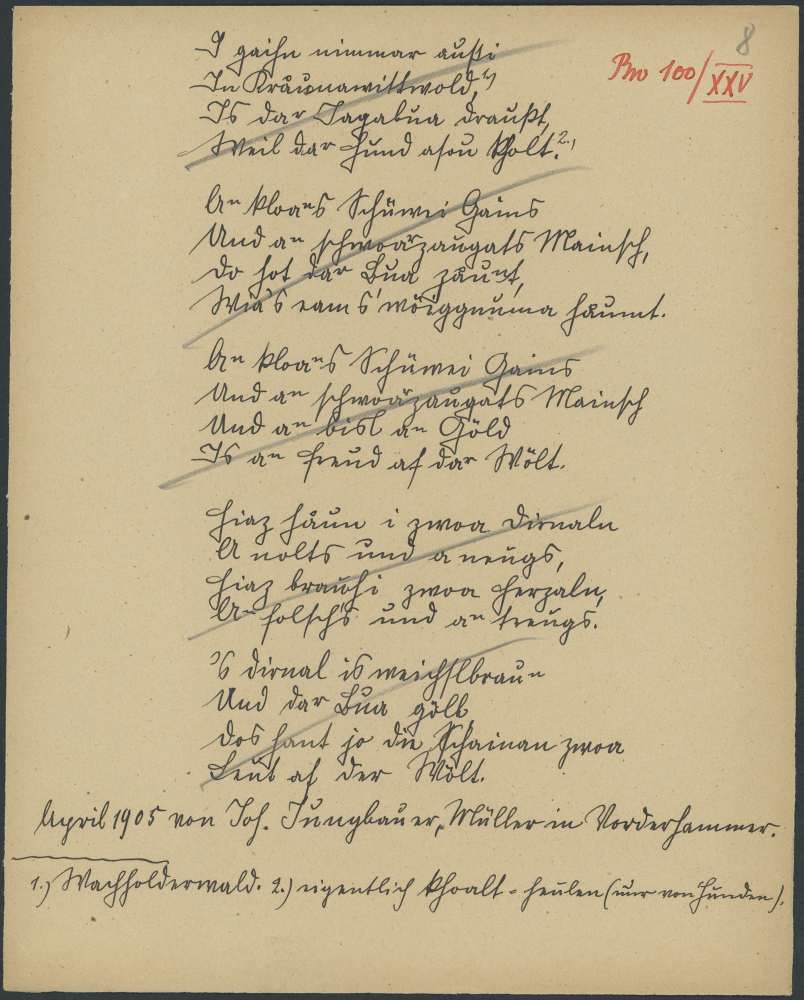 8
Bw 100/XXV
I gaihn nimmar aussi
In Kråunawittwold,¹⁾
Is dar Jagabua draußt,
Weil dar Hund asou kholt.²·⁾
Aⁿ kloaⁿs Schüwei Gains
Und aⁿ schwoarzaugats Mainsch,
Do hot dar Bua zåunt,
Wia's eam s' wöiggnuma håumt.
Aⁿ kloaⁿs Schüwei Gains
Und aⁿ schwoarzaugats Mainsch
Und aⁿ bisl aⁿ Göld
Is aⁿ Freud af dar Wölt.
Hiaz håun i zwoa Dirnaln
A nolts und a neugs,
Hiaz brauchi zwoa Herzaln,
Aⁿ folsch's und aⁿ treugs.
's Dirnal is weichslbrauⁿ
Und dar Bua gölb
Dos hant jo die Schainan zwoa
Leut af der Wölt.
April 1905 von Joh. Jungbauer, Müller in Vorderhammer.
1.) Wachholderwald. 2.) eigentlich khoalt = heulen (nur von Hunden).